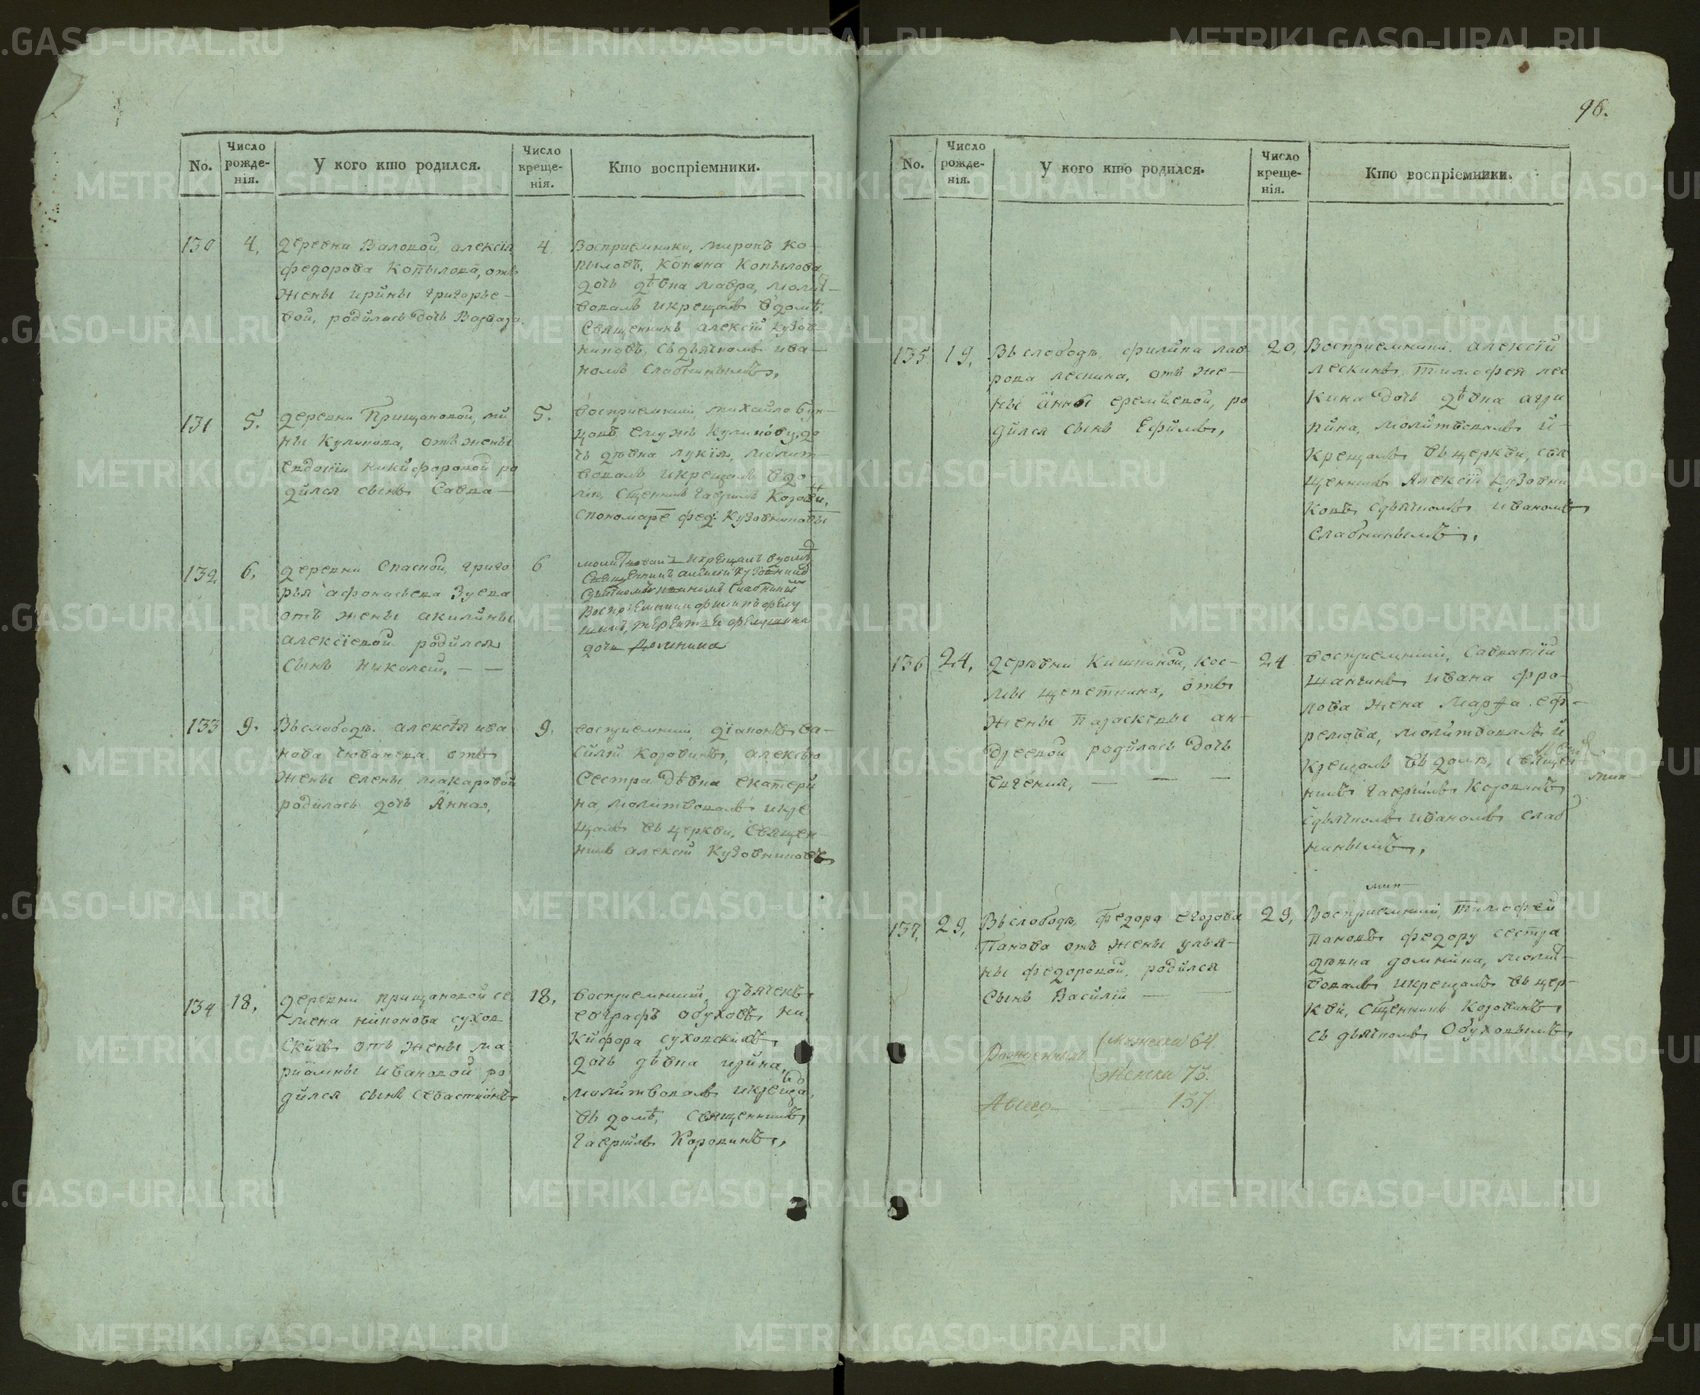 96.
No.
Число рожде- нія.
У кого кто родился.
Число креще- нія.
Кто воспріемники.
130
4.
деревни Валовой, алексѣя
федорова Копылова, отъ
жены ирины григорье-
вой, родилась дочь Варвара
4
Восприемники, миронъ Ко-
пыловъ, конона Копылова
дочь дѣвка мавра, молит-
вовалъ икрещалъ вдомѣ,
Священникъ алексѣй кузов-
никовъ, съдьячкомъ ива-
номъ Слабнинымъ,
131
5.
деревни Прищановой, ми
ны Куликова, отъ жены
евдокіи никифоровой ро
дился сынъ Савва—
5.
восприемники, михайло
Куликову, до
чь дѣвка лукія, молит-
вовалъ икрещалъ вдо
мѣ, Сщенникъ гавриилъ
спономаре фед: Кузовниковы
132
6.
деревни Спасской, григо
рья афонасьева Зуева
отъ жены акилины
алексіевой родился
сынъ николай, — —
6
молитвовалъ икрещалъ вдомѣ
Священникъ алексѣй Кузовник
Сдьячкомъ иваномъ Слабнины
Восприемники филипъ
дочь Домника
133
9.
Вьслободѣ алексѣя ива
нова отъ
жены елены макаровой
родилась дочь Анна,
9.
восприемники, діаконъ ва-
силій Коровинъ, алексѣю
Сестра дѣвка екатери
на, молитвовалъ икре
щалъ въ церкви, Священ-
никъ алексѣй Кузовниковъ
134
18.
деревни прищановой се
мена никонова сухов
скихъ отъ жены ма
риамны ивановой ро
дился сынъ Севастіянъ
18.
восприемники, дьячекъ
евграфъ Обуховъ, ни
кифора суховскихъ
дочь дѣвка ирина,
молитвовалъ икреща
въ домѣ, священникъ,
гавриилъ Коровинъ,
No.
Число рожде- нія.
У кого кто родился.
Число креще- нія.
Кто воспріемники.
135
19.
Вьслободѣ, филипа лав
рова лескина, отъ же-
ны Анны еремѣевой, ро
дился сынъ Ефимъ,
20.
Восприемники, алексѣй
лескинъ, Тимофея лес
кина дочь дѣвка агри
пина, молитвовалъ и-
крещалъ въ церкви, свя
щенникъ Алексѣй кузовни
ковъ, съдьячкомъ иваномъ
слабнинымъ,
136
24.
деревни Кишкиной, кос-
мы щепеткина, отъ
жены параскевы ан-
дреевой родилась дочь
евгенія, — — —
24
восприемники, Савватій
шангинъ ивана фро-
лова жена Марфа еф-
ремова, молитвовалъ и
крещалъ въ домѣ, священ
никъ гавриилъ Коровинъ
сдьячкомъ иваномъ слаб
нинымъ,
137.
29.
Вьслободѣ, федора егорова
Панова отъ жены улья-
ны федоровой, родился
сынъ Василій — —
29.
Восприемники, Тимофей
Пановъ федору сестра
дѣвка домника, молит-
вовалъ икрещалъ въ цер-
кви, сщенникъ Коровинъ,
съ дьячкомъ Обуховымъ,
Рожденныхъ
Мужеска 64
Женска 73.
А всего — — 137